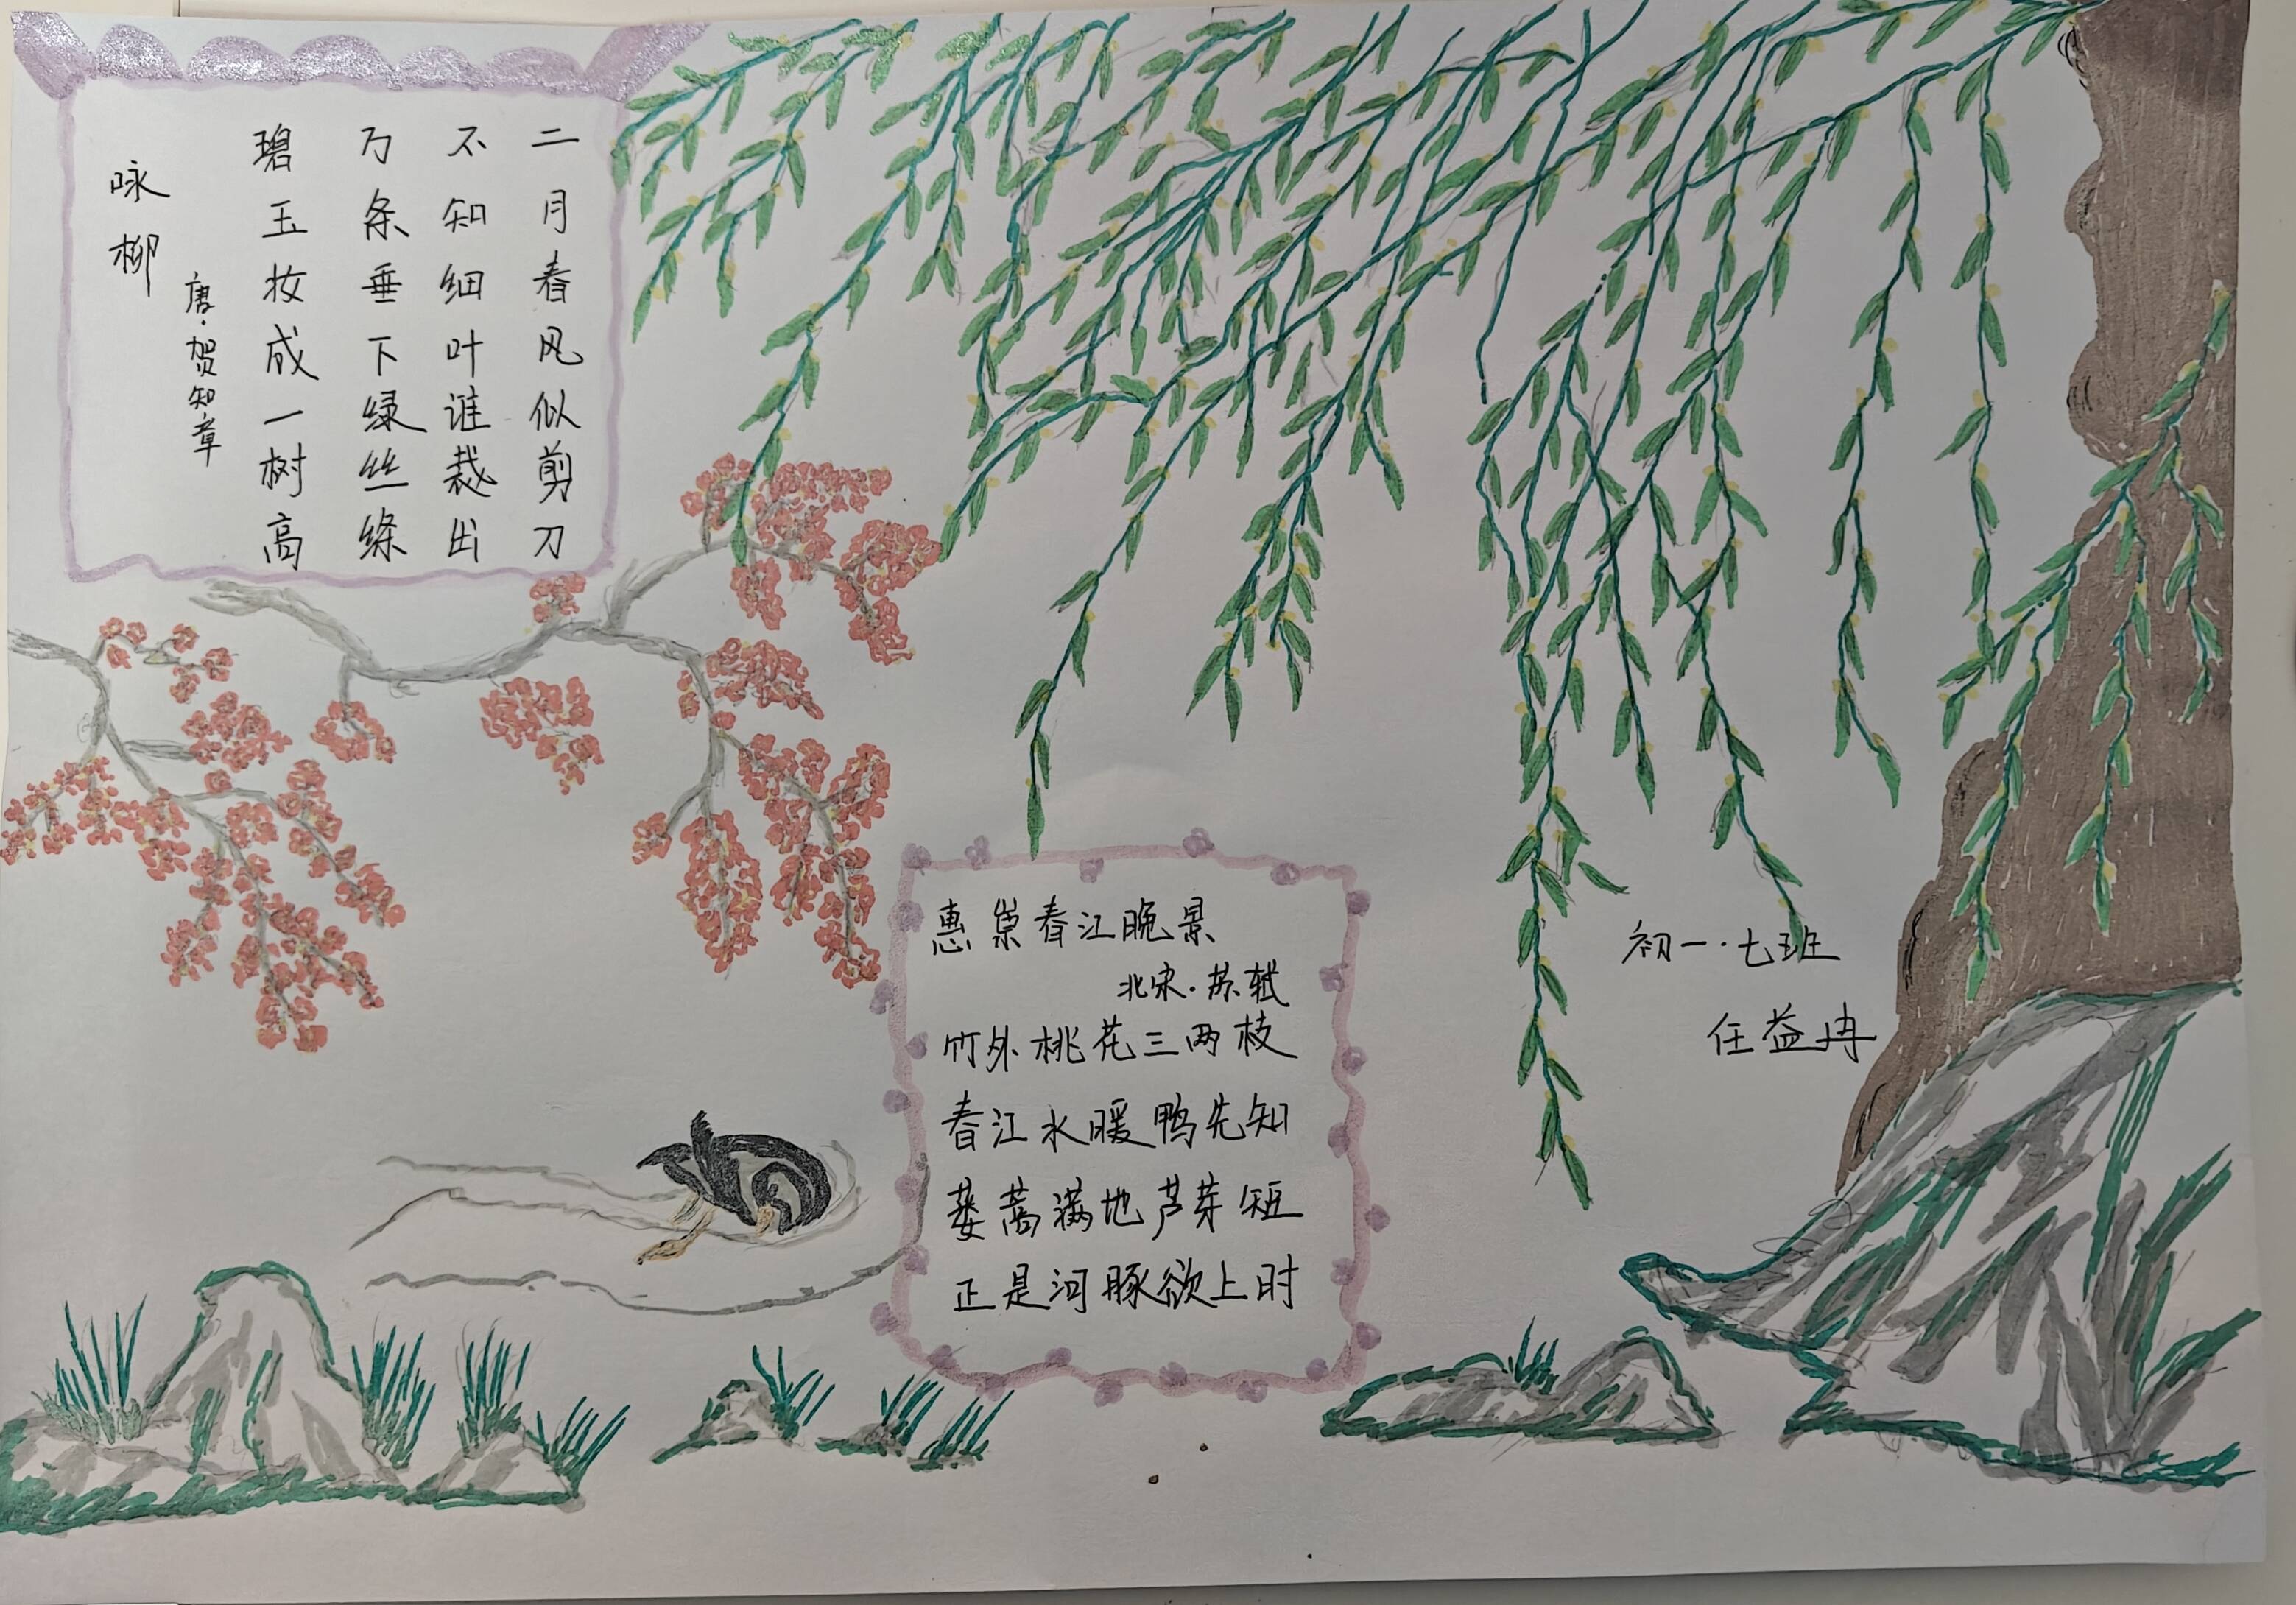 咏柳
唐·贺知章
碧玉妆成一树高
万条垂下绿丝绦
不知细叶谁裁出
二月春风似剪刀
惠崇春江晚景
北宋·苏轼
竹外桃花三两枝
春江水暖鸭先知
蒌蒿满地芦芽短
正是河豚欲上时
初一·七班
任益冉